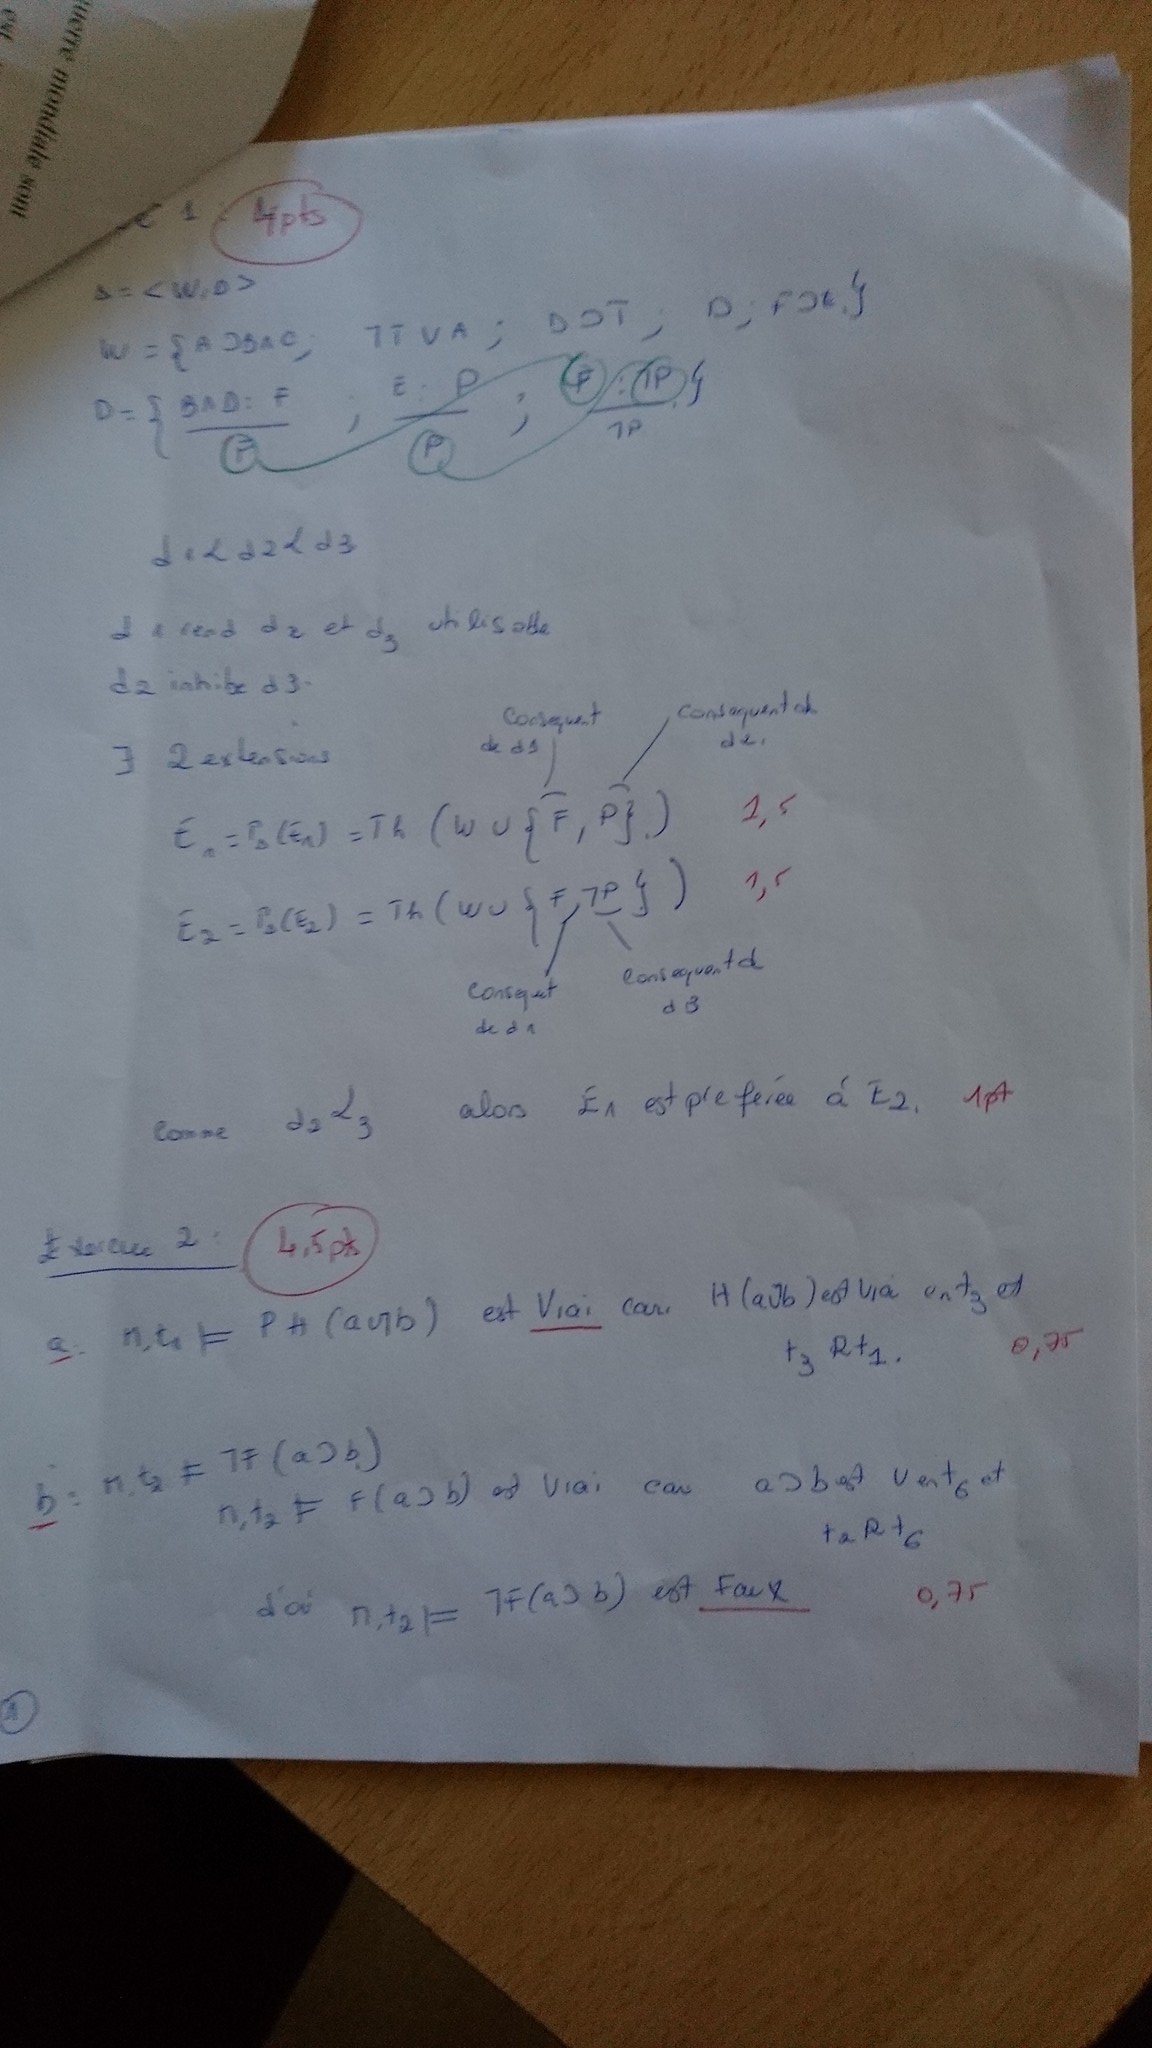 uerre mondiale som
est
1 : 4pts
Δ = <W,D>
W = {A⊃B∧C; ⌉T∨A; D⊃T; D; F⊃E.}
D = { B∧D : F / F ; E : P / P ; F : ⌉P / ⌉P }
d1<d2<d3
d1 rend d2 et d3 utilisable
d2 inhibe d3.
∃ 2 extensions
Consequent de d1
Consequent de d2.
E1 = Γ∆(E1) = Th (W ∪ {F, P}.) 1,5
E2 = Γ∆(E2) = Th (W ∪ {F, ⌉P}) 1,5
Consequt de d1
Consequent de d3
Comme d2<3 alors E1 est preferée á E2. 1pt
Exercice 2 : 4,5pts
a: n,t1 ⊨ PH(a∪⌉b) est Vrai car H(a⊃b) est vrai en t3 et
t3 R t1. 0,75
b: n,t2 ⊨ ⌉F(a⊃b)
n,t2 ⊨ F(a⊃b) est Vrai car a⊃b est V en t6 et
t2 R t6
d'où n,t2 ⊨ ⌉F(a⊃b) est Faux 0,75
1